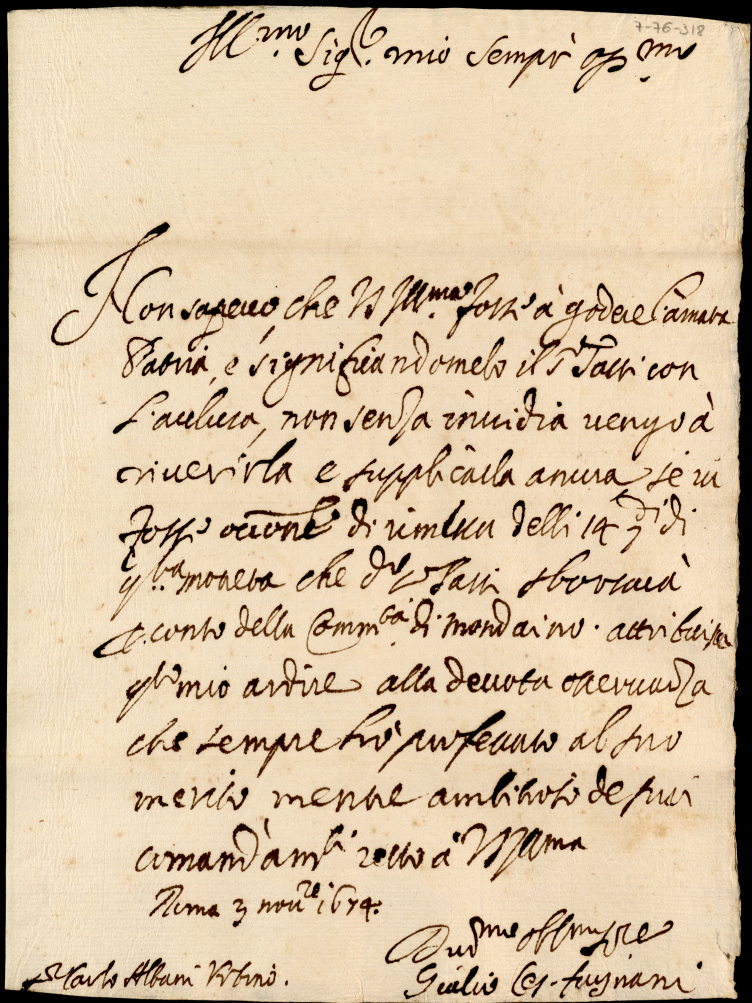 7-76-318
Ill.mo Sig.r mio sempre oss.mo
Non sapevo, che VS Ill.ma fosse à godere l'amata
Patria, e significandomelo il S.r Tassi con
l'acclusa, non senza invidia vengo à
riverirla e supplicarla ancora se vi
fosse occ.one di rimessa delli 14 di di
q.ta moneta che d.o S.r Tassi sborsarà
p. conto della Comm.tà di Mondaino. attribuisca
q.to mio ardire alla devota osservanza
che sempre hò professato al suo
merito mentre ambitioso de suoi
comandam.ti resto à VS Ill.ma
Roma 3 nov.re 1674.
Dev.mo
S.r Carlo Albani Urbino.
Giulio Ces.